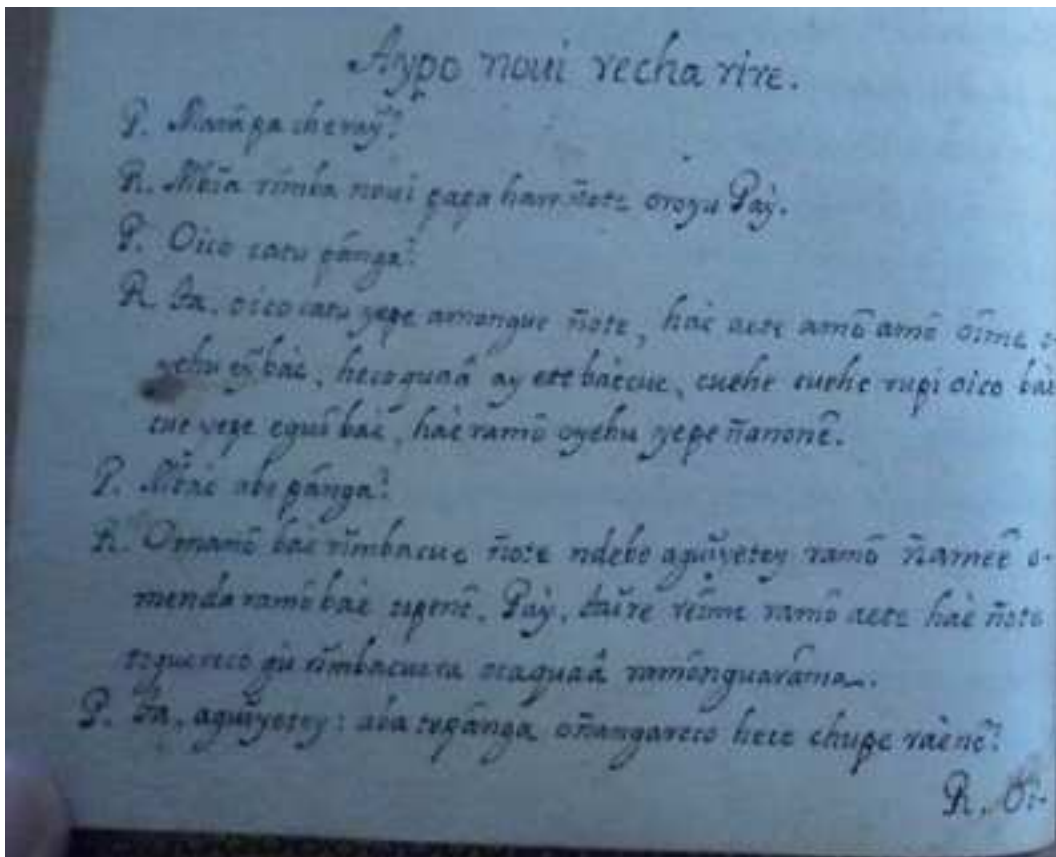 Aypo noui recha rire.
P. Marãpa cheraỹ?
R. Mbĩa rĩmba noui papa hare ñote oroyu Paỳ.
P. Oico catu pânga?
R. Ta, oico catu yepe amongue ñote, haè aete amô amô oîme
yehu eỹ bàe, hecoguaâ aỹ ete bàecue, cuehe cuehe rupi oico bàe
cue yepe eguî bàe, hàe ramô oyehu yepe ñanonê.
P. Mbàe abe pânga?
R. Omanô bàe rĩmbacue ñote ndebe aguĩyetey ramô ñameê o-
menda ramô bàe upenê. Paỳ, taĩre reîme ramô aete hàe ñote
toguereco gu rĩmbacuera ocaquaâ ramônguarâma.
P. Ta, aguĩyetey: aba tepânga oñangareco hece chupe raènê?
R. Oi-